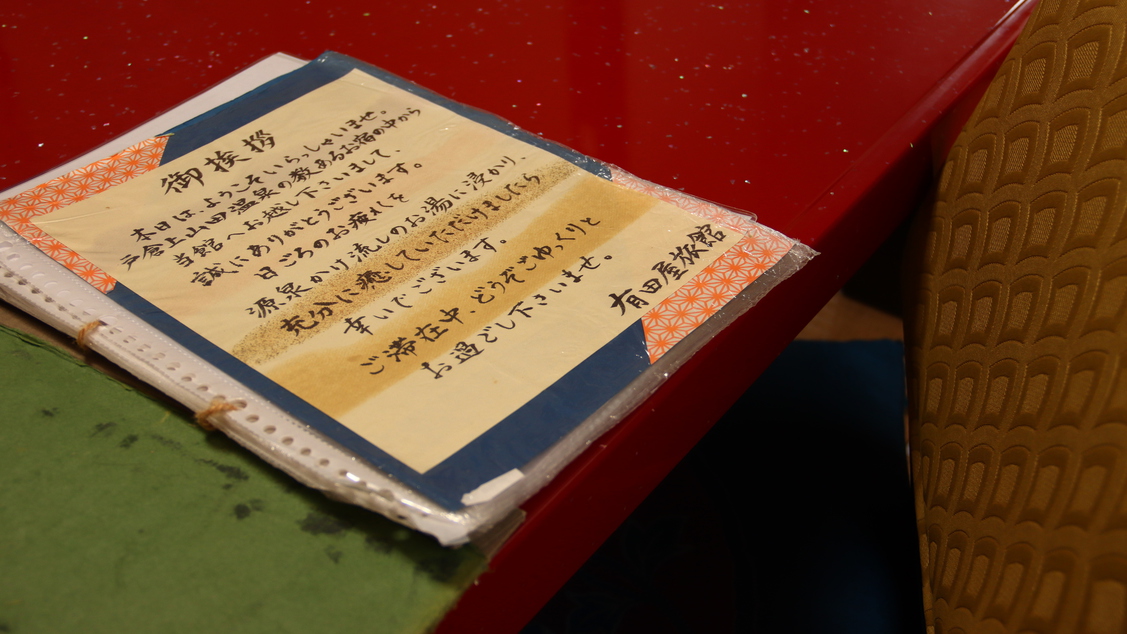 御挨拶
本日は、ようこそいらっしゃいませ。
戸倉上山田温泉の数あるお宿の中から
当館へお越し下さいまして、
誠にありがとうございます。
日ごろのお疲れを
源泉かけ流しのお湯に浸かり、
充分に癒していただけましたら
幸いでございます。
ご滞在中、どうぞごゆっくりと
お過ごし下さいませ。
有田屋旅館